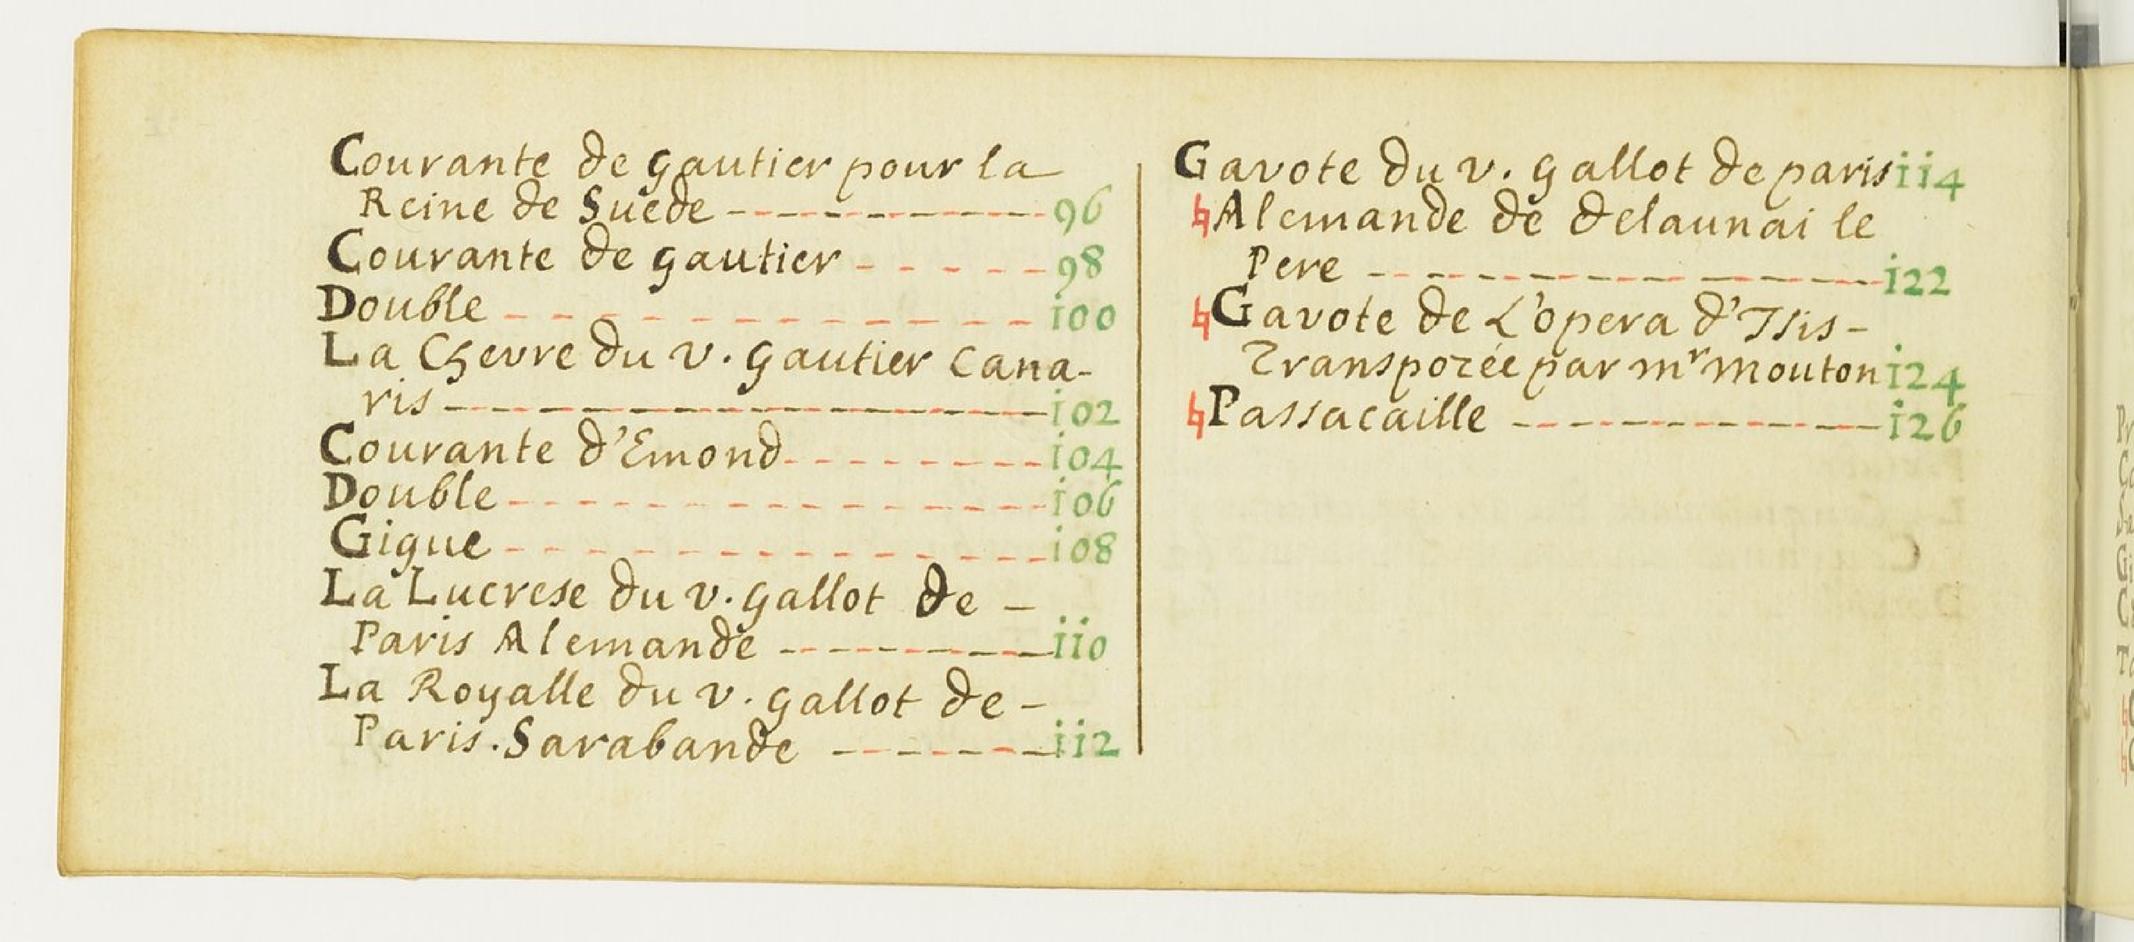 Courante de gautier pour la
Reine de Suede ------------ 96
Courante de gautier ------ 98
Double ------------ i00
La Chevre du v. gautier Cana-
ris ------------ i02
Courante d'Emond --------- i04
Double ------------ i06
Gigue ------------ i08
La Lucrese du v. gallot de -
Paris Alemande --------- ii0
La Royalle du v. gallot de -
Paris. Sarabande ------- ii2
Gavote du v. gallot de paris ii4
♮Alemande de delaunai le
Pere ------------ i22
♮Gavote de L'opera d'Isis -
Transpozée par mr mouton i24
♮Passacaille --------- i26